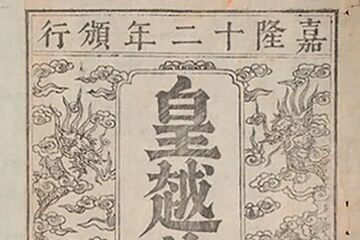 嘉隆十二年頒行
皇越